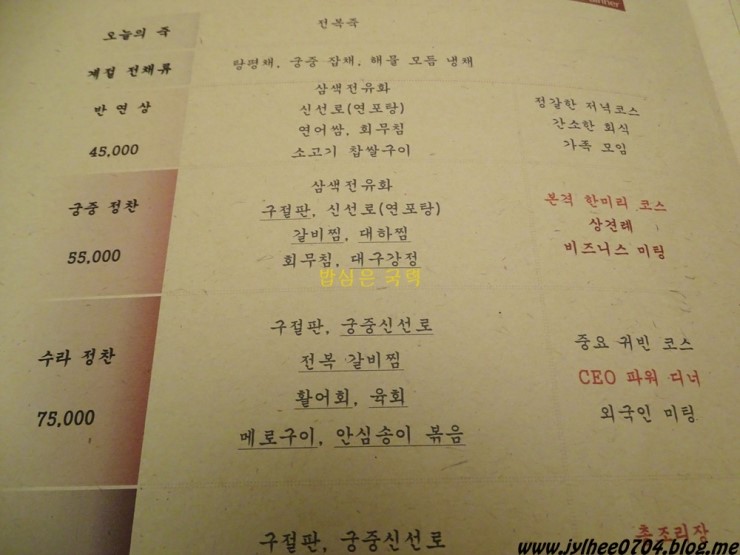 오늘의 죽
전복죽
계절 전채류
탕평채, 궁중 잡채, 해물 모듬 냉채
반 연 상
45,000
삼색전유화
신선로(연포탕)
연어쌈, 회무침
소고기 찹쌀구이
정갈한 저녁코스
간소한 회식
가족 모임
궁중 정찬
55,000
삼색전유화
구절판, 신선로(연포탕)
갈비찜, 대하찜
회무침, 대구강정
본격 한미리 코스
상견례
비즈니스 미팅
밥심은 국력
수라 정찬
75,000
구절판, 궁중신선로
전복 갈비찜
활어회, 육회
메로구이, 안심송이 볶음
중요 귀빈 코스
CEO 파워 디너
외국인 미팅
구절판, 궁중신선로
총조리장
www.jylhee0704.blog.me